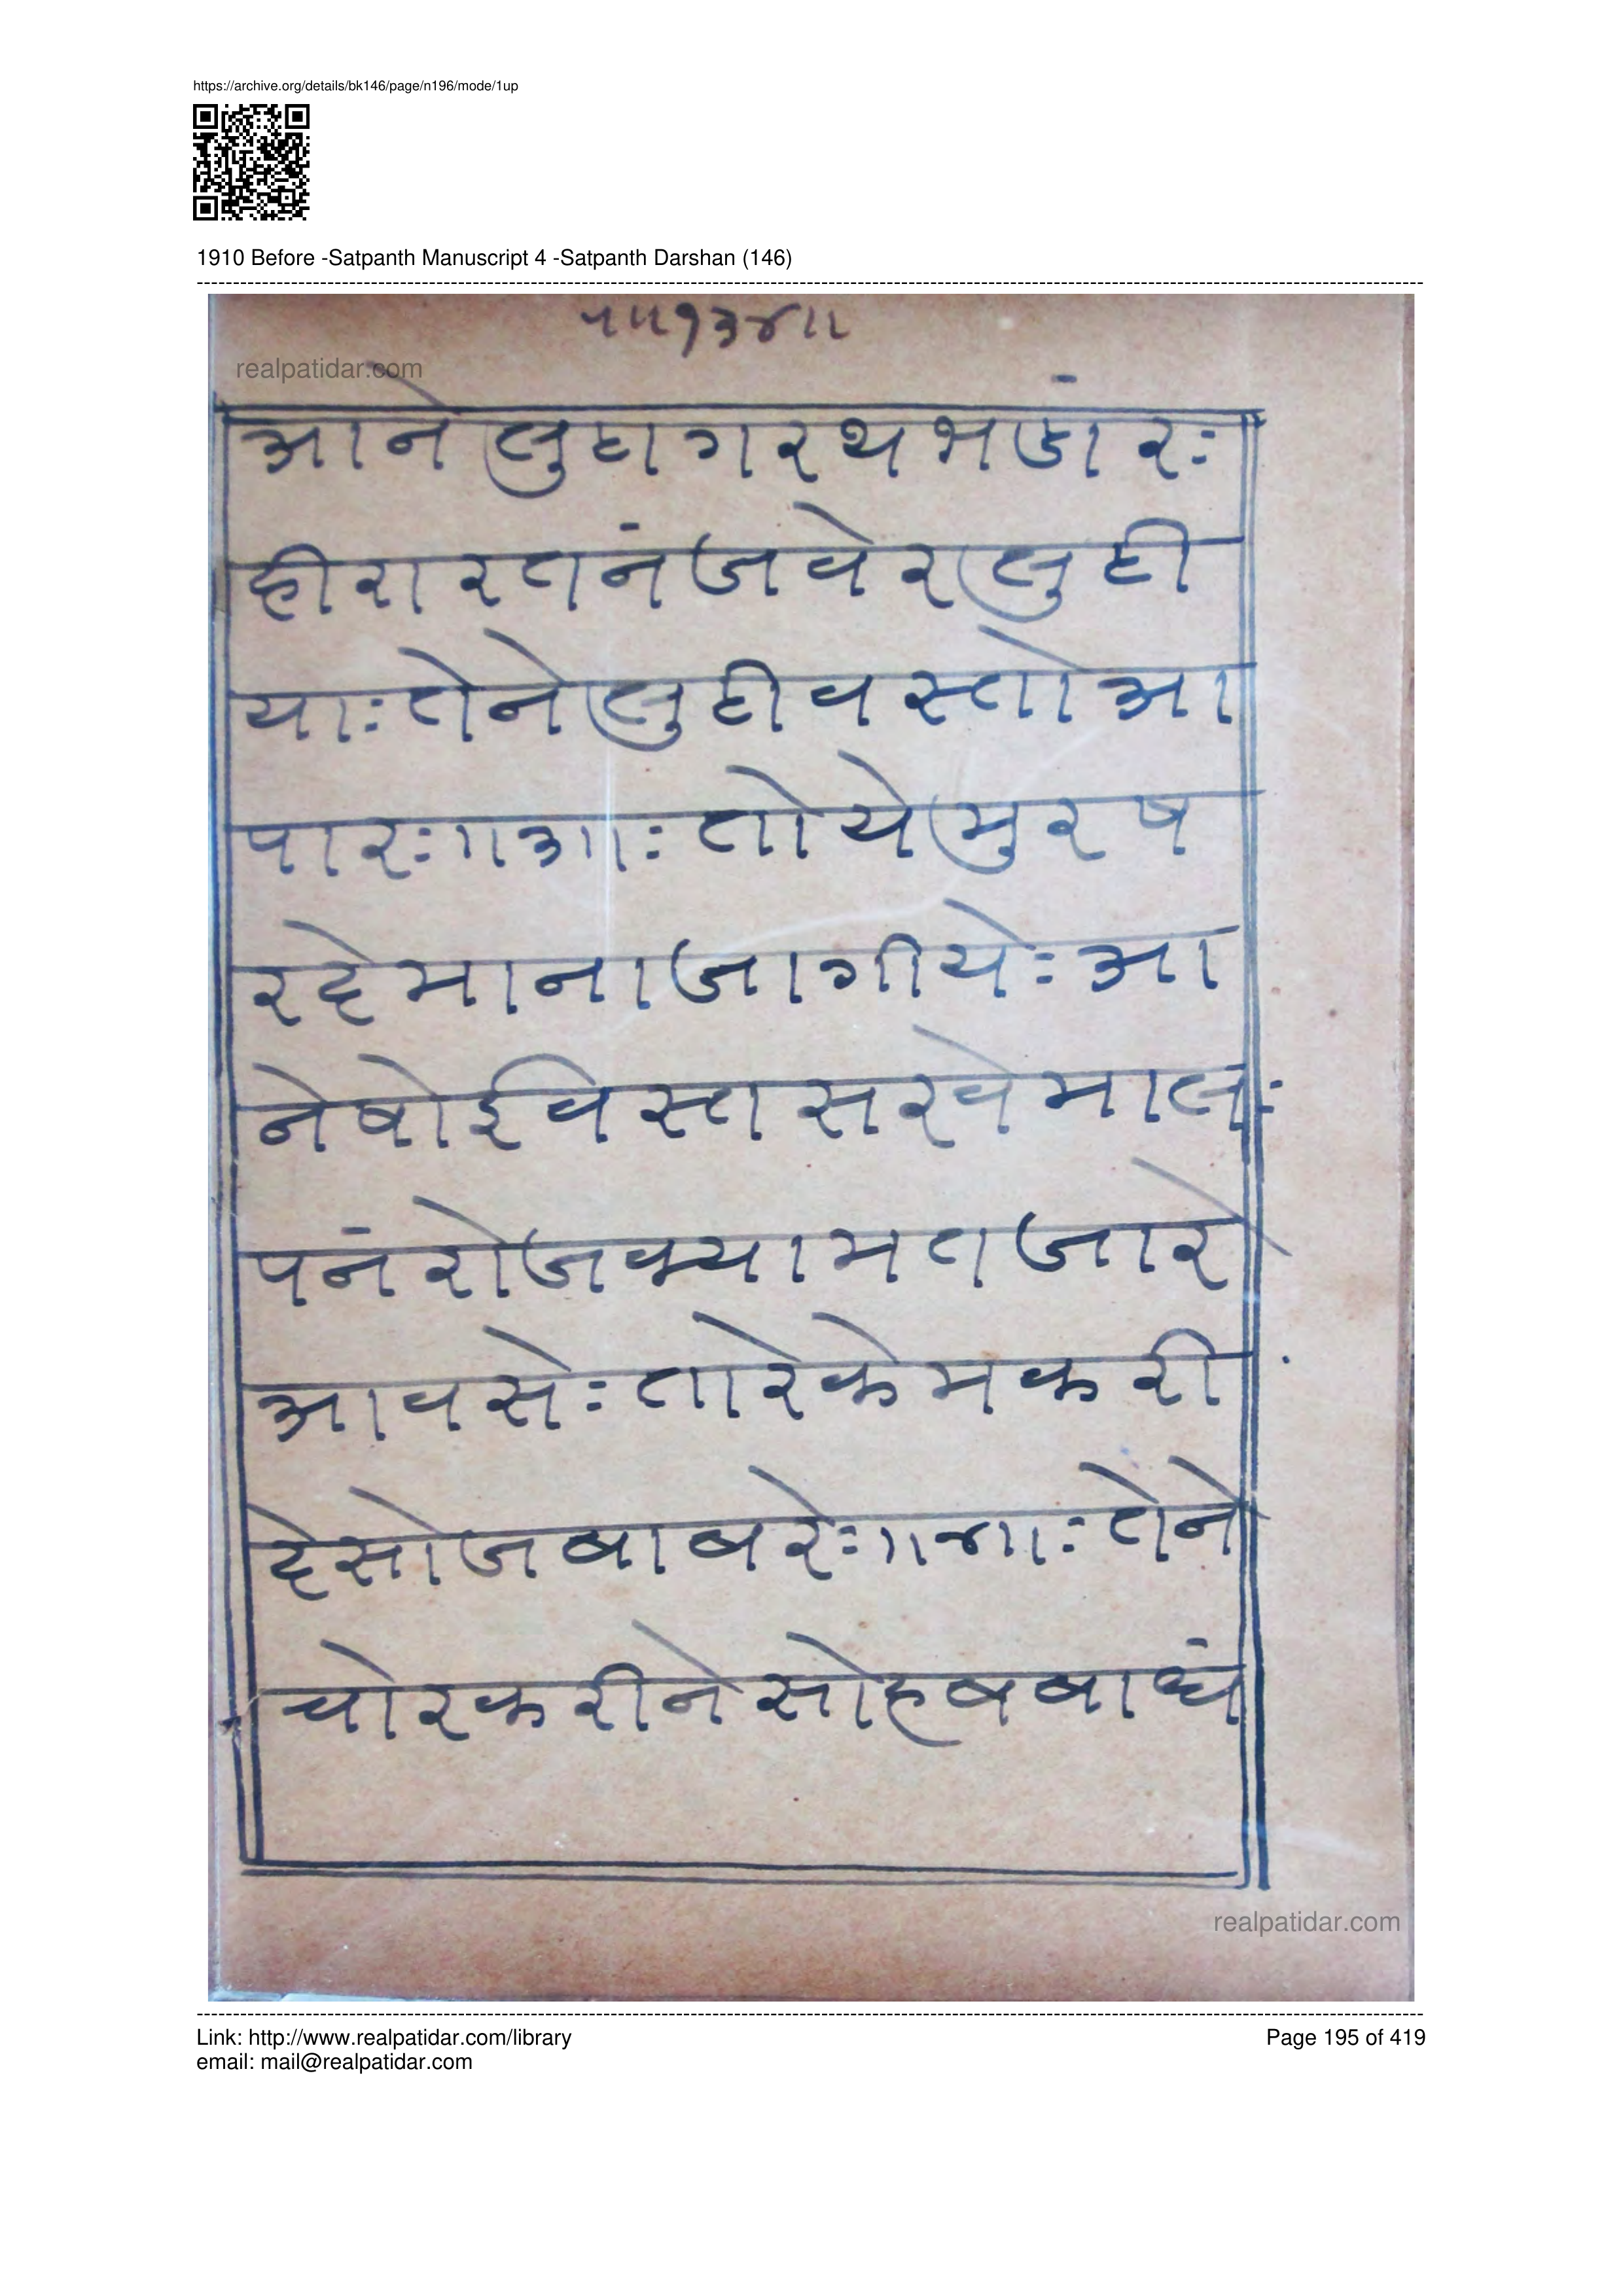 https://archive.org/details/bk146/page/n196/mode/1up
1910 Before -Satpanth Manuscript 4 -Satpanth Darshan (146)
realpatidar.com
आने लुटा गरथ भडांरः
हीरा रतनं जवेर लुटी
याः तेने लुटी वस्तो आ
पारः॥३॥ः तो ये मुरष
रदे माना जागीयेः आ
ने षोई वस्ता सरवे मालः
पनं रोज क्यामत जारे
आवसेः तारे केम करी
देसो जबाब रेः॥४॥ः तेने
चोर करीने सो हब बाधं
realpatidar.com
Link: http://www.realpatidar.com/library
Page 195 of 419
email: mail@realpatidar.com